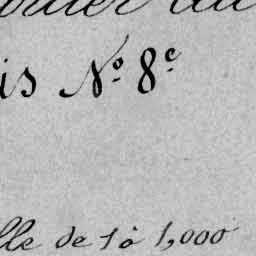 is N.º 8.e
lle de 1 à 1,000